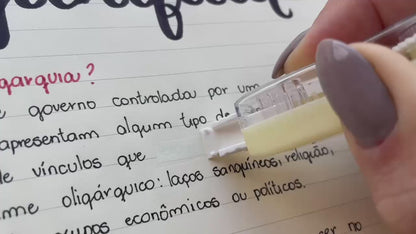 garquia?
governo controlados por um
apresentam algum tipo de
de vínculos que
me oligárquico: laços sanguíneos, religião,
econômicos ou políticos.
no